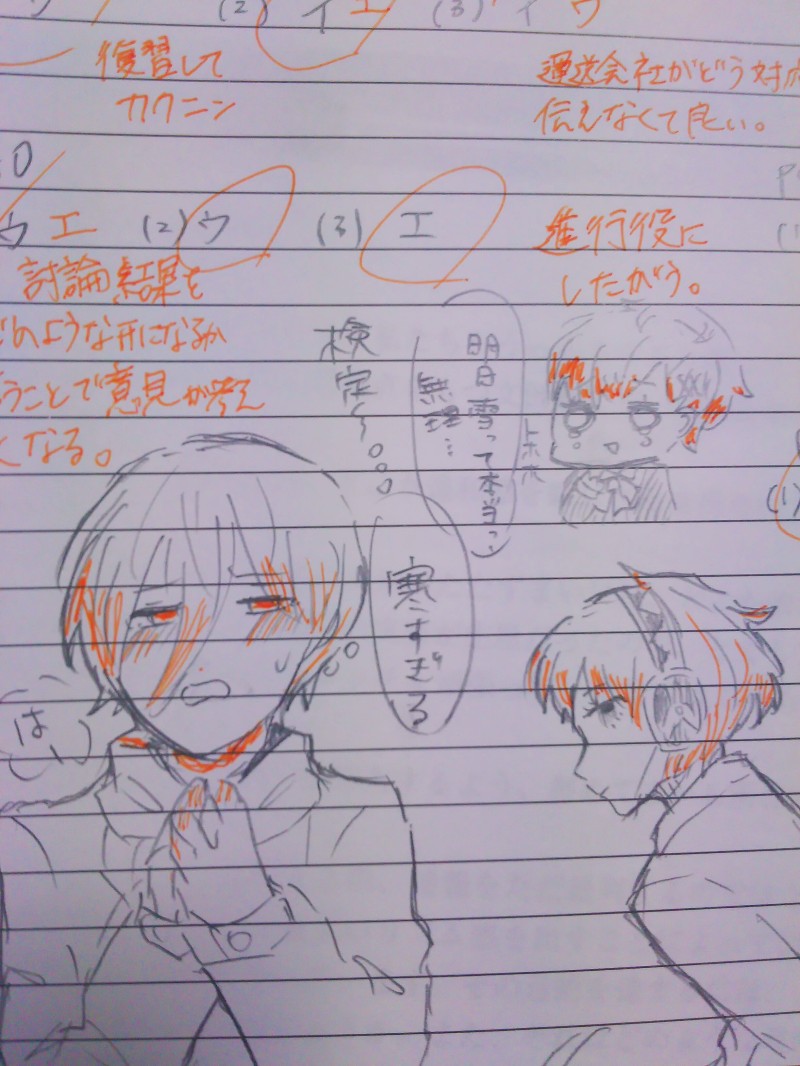 (2) イエ (3) イウ
復習して
カクニン
運送会社がどう対
伝えなくて良い。
ウエ (2) ウ (3) エ
進行役に
したがう。
討論結果を
どのような形になるか
うことで意見が考え
くなる。
検定〜。。。
明日雪って本当っ、
無理…
トホホ
寒すぎる
はい
(1)